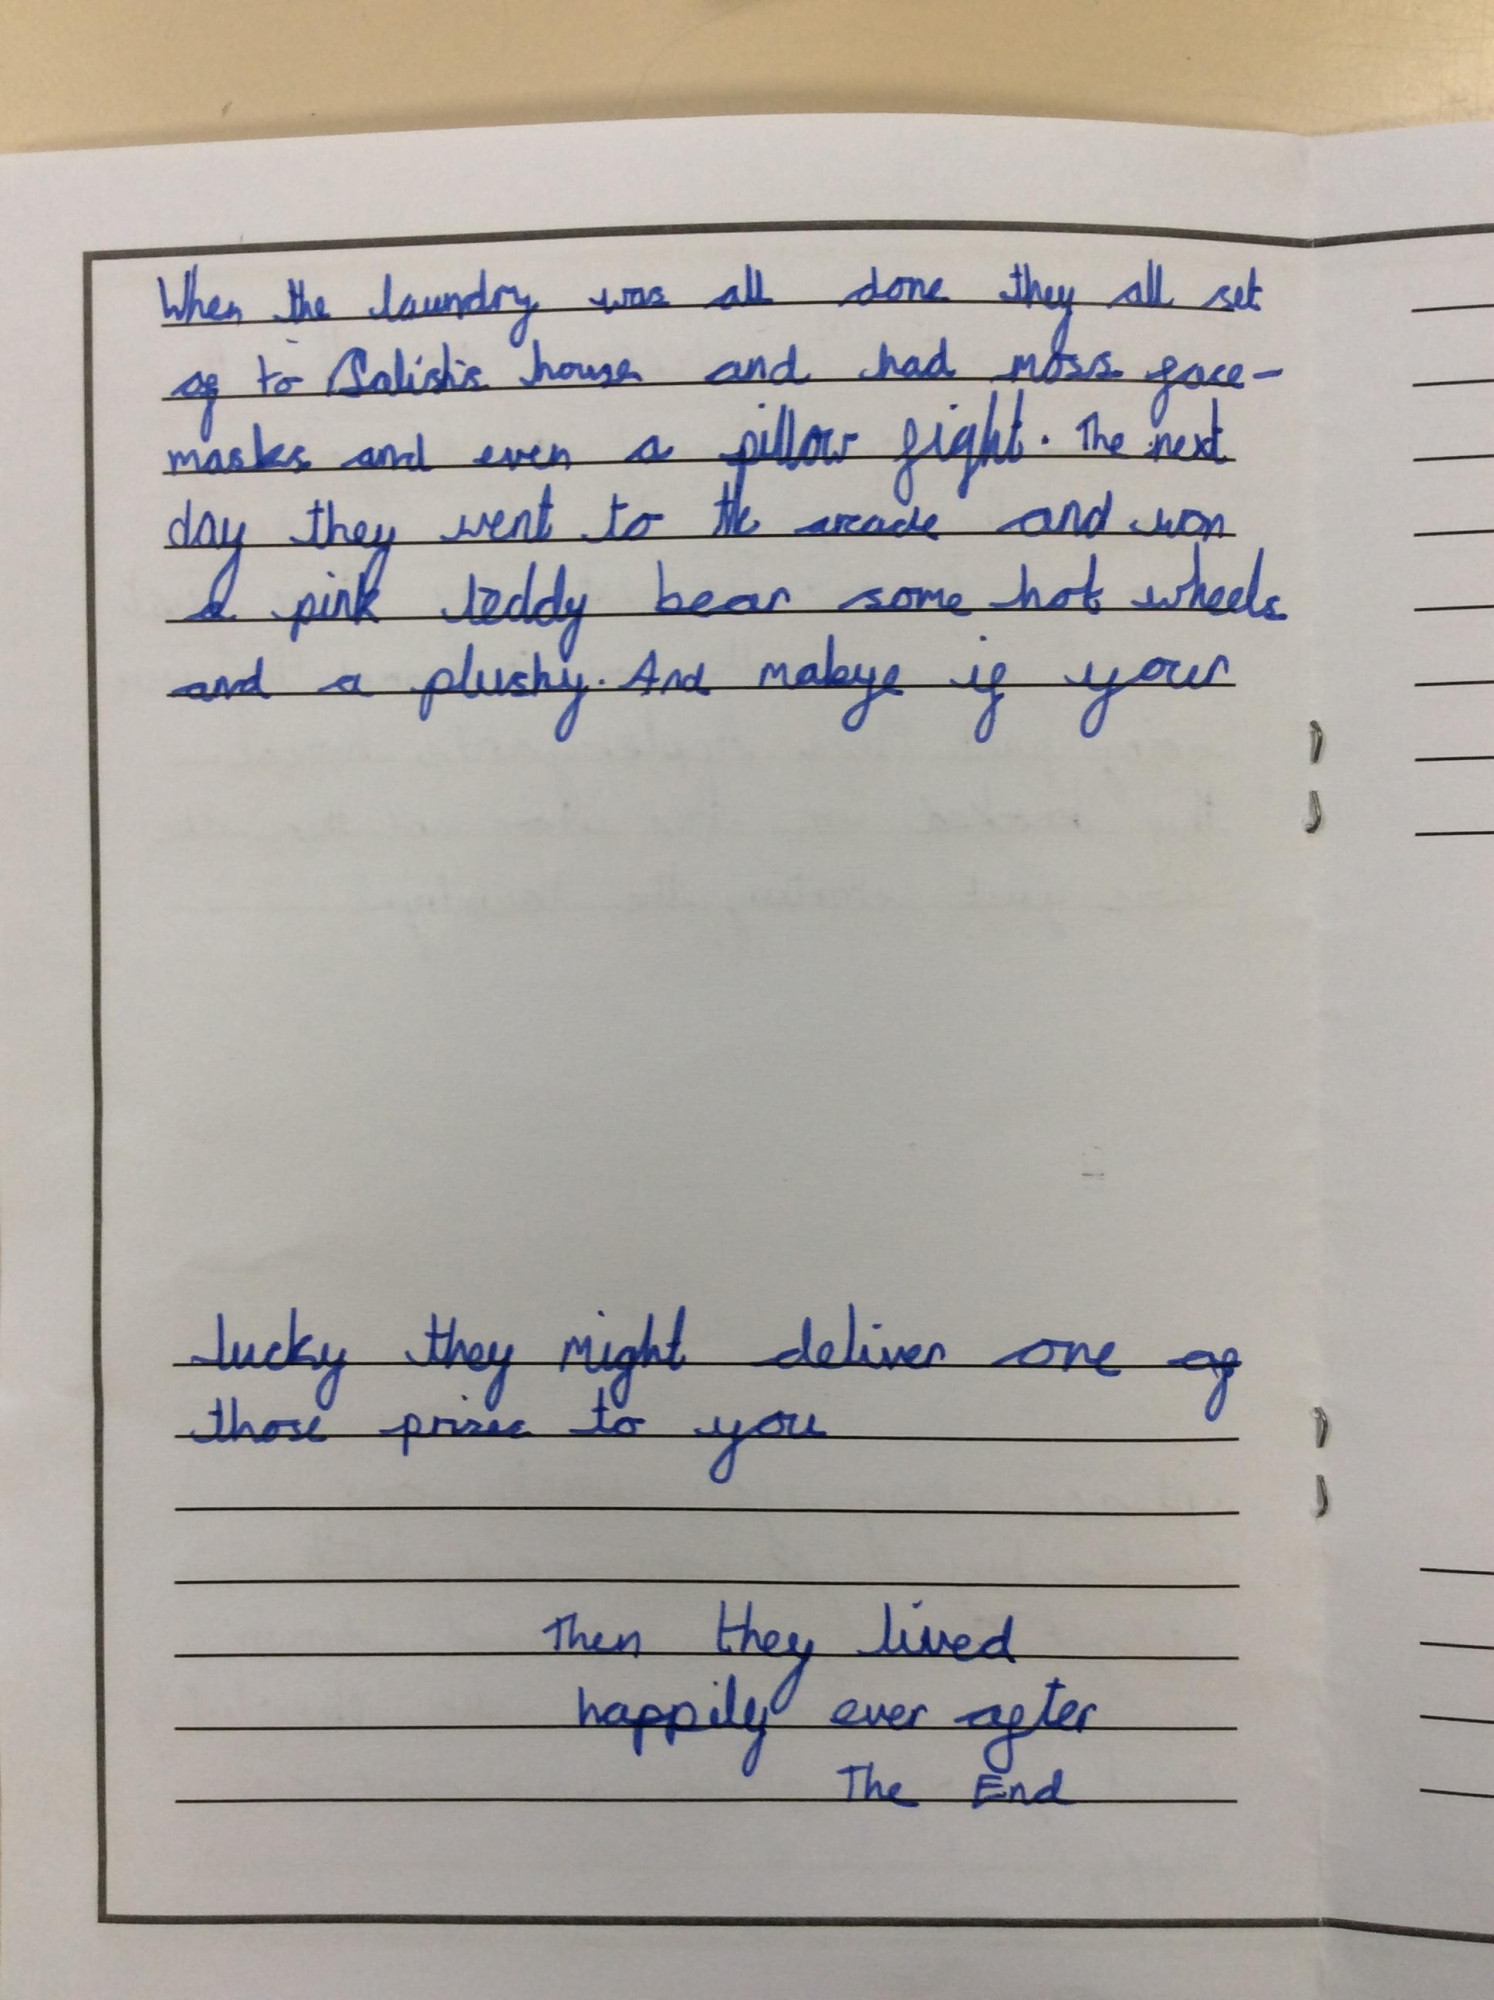 When the laundry was all done they all set
of to Salish's house and had moss face-
masks and even a pillow fight. The next
day they went to the arcade and won
a pink teddy bear some hot wheels
and a plushy. And mabye if your
lucky they might deliver one of
those prizes to you
Then they lived
happily ever after
The End